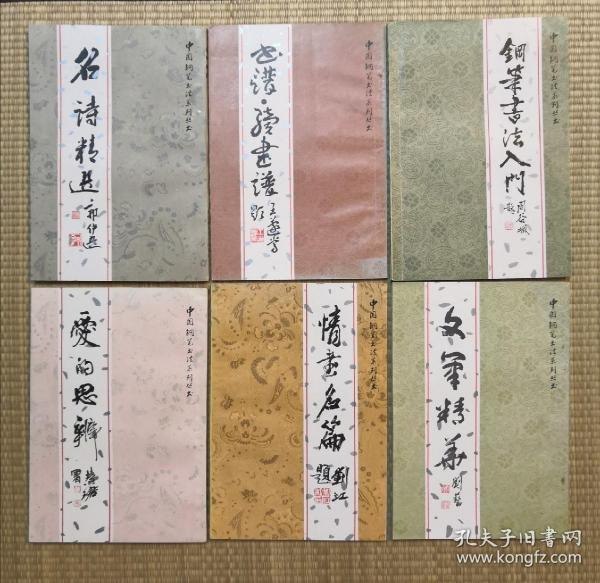 中国钢笔书法系列丛书
名诗精选
中国钢笔书法系列丛书
书谱·续书谱
王遐举
题
中国钢笔书法系列丛书
鋼筆書法入門
周谷城
题
中国钢笔书法系列丛书
愛的思辨
中国钢笔书法系列丛书
情書名篇
劉江
題
中国钢笔书法系列丛书
文筆精華
劉藝
孔夫子旧书网
www.kongfz.com